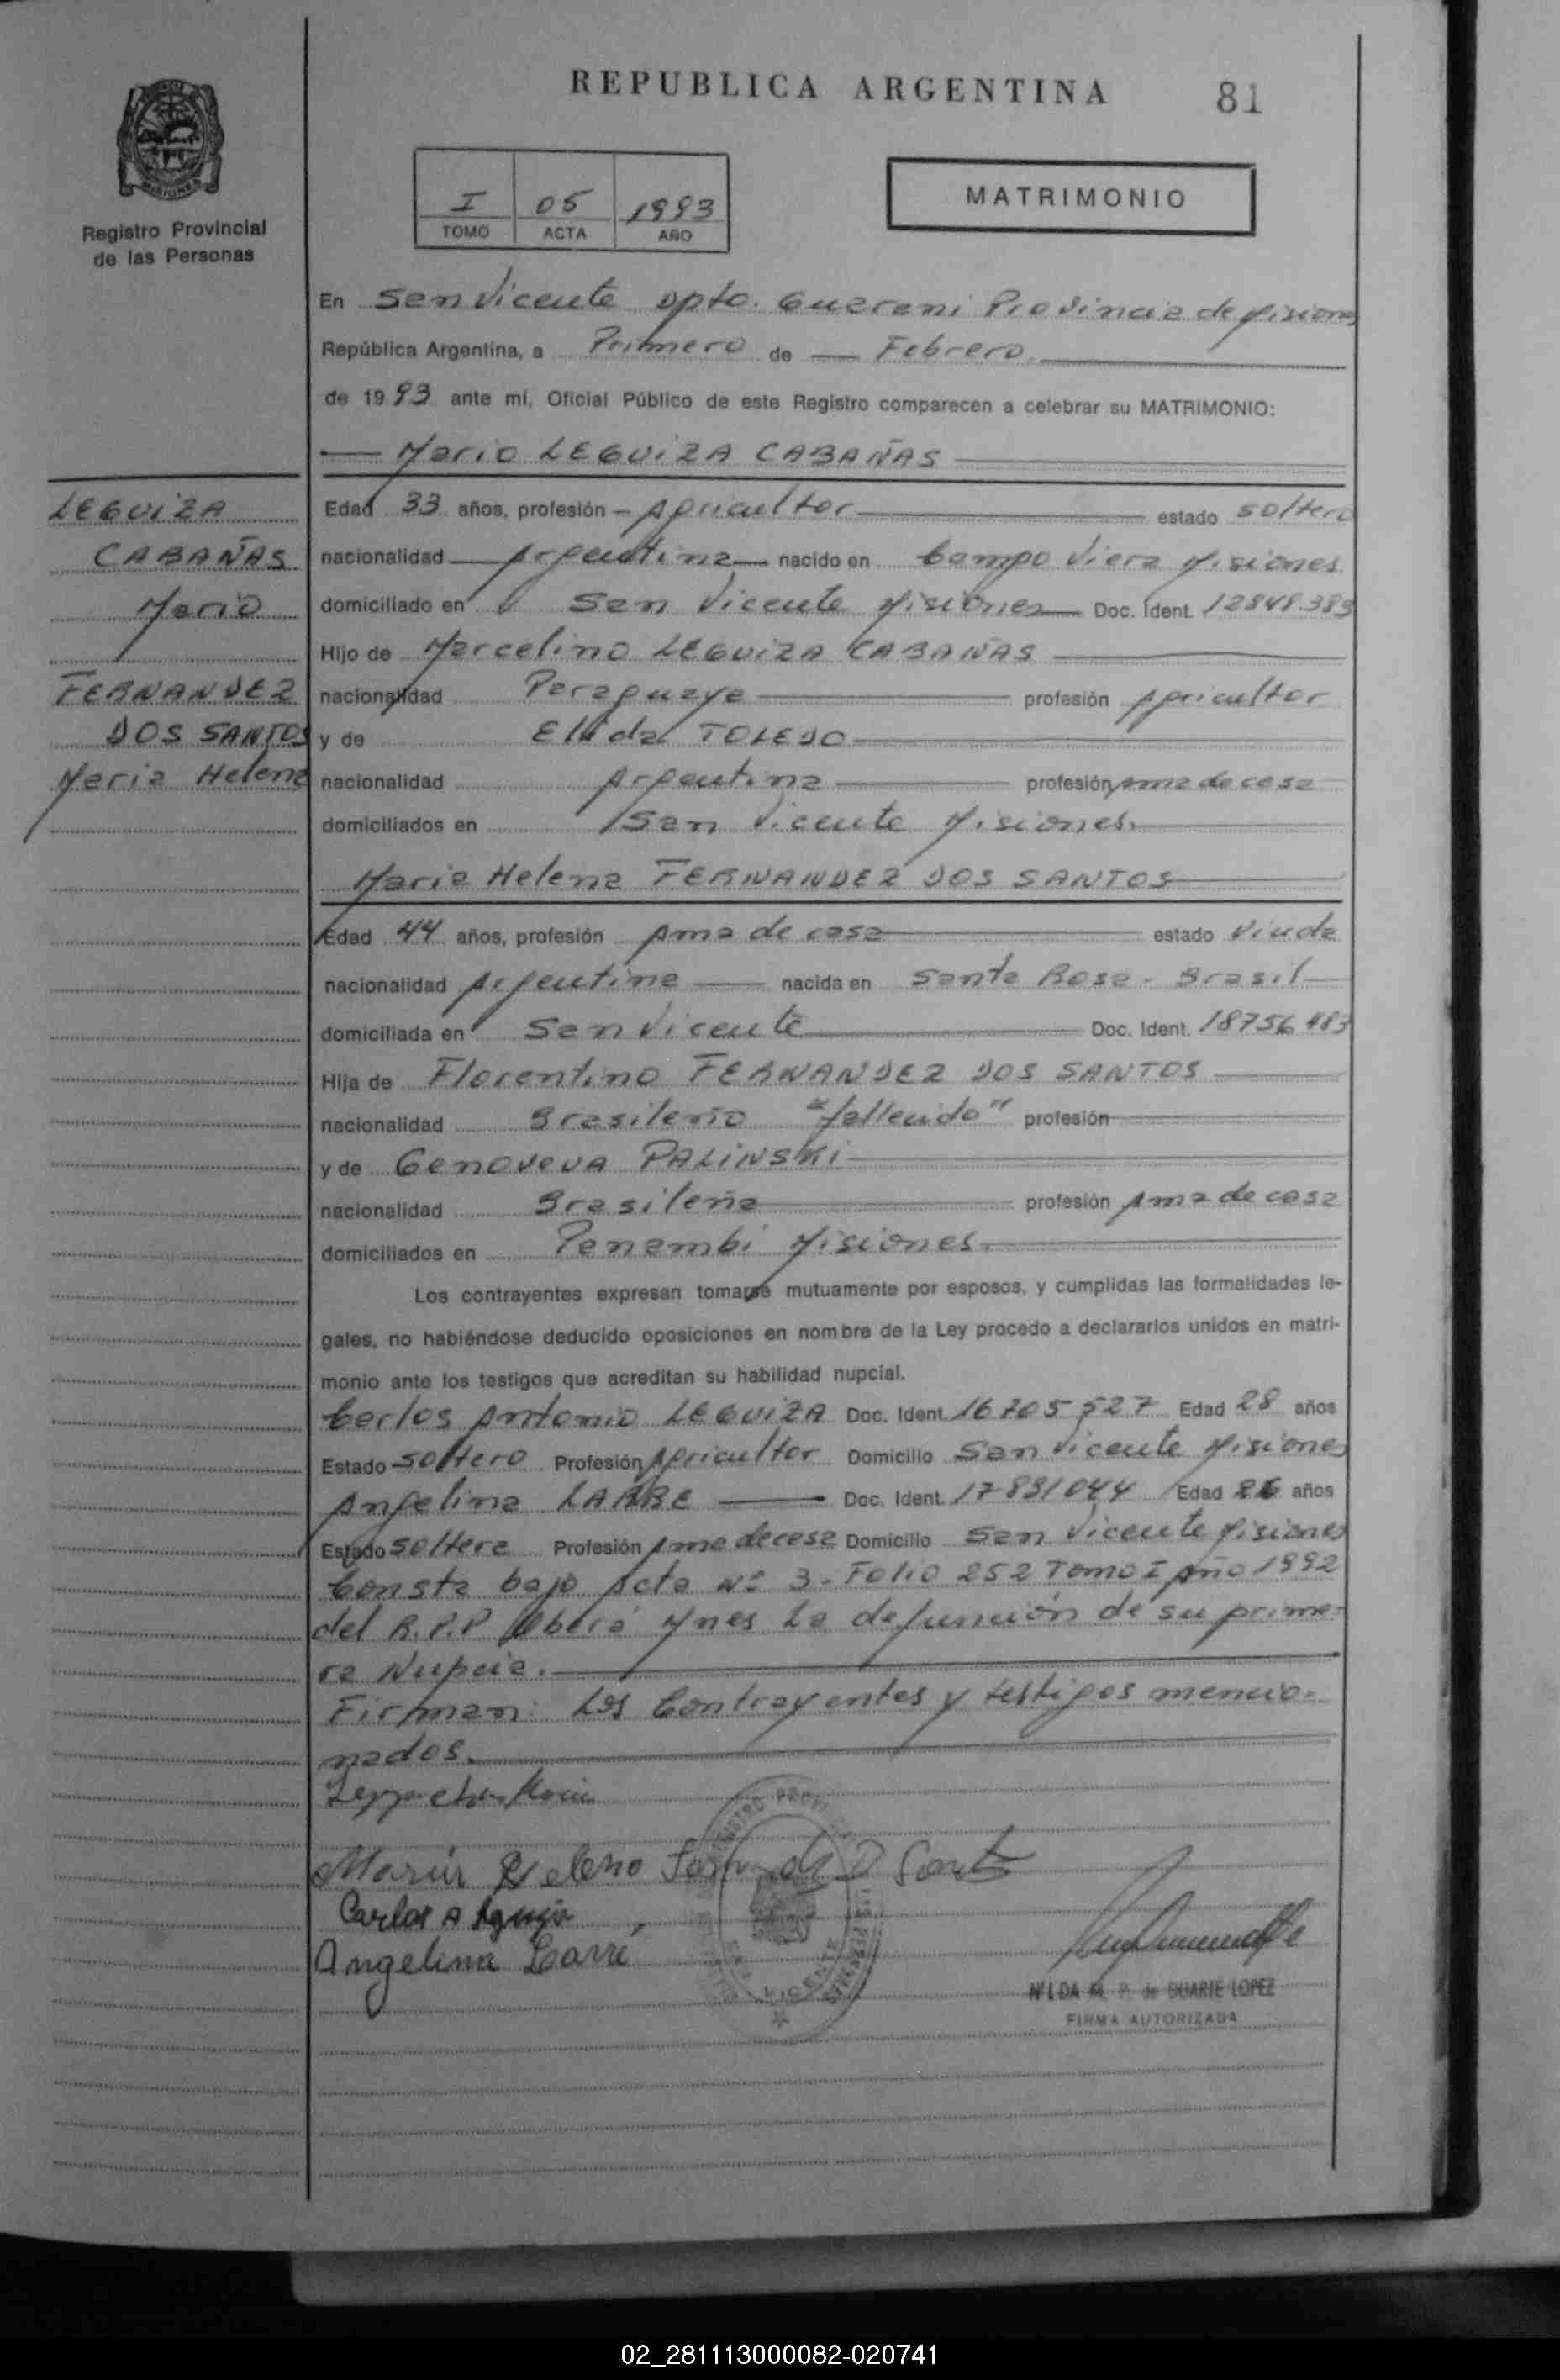 REPUBLICA ARGENTINA
81
MISIONES
Registro Provincial
de las Personas
I 05 1993
TOMO ACTA AÑO
MATRIMONIO
En San Vicente Dpto. Guarani Provincia de Misiones
República Argentina, a Primero de — Febrero
de 1993 ante mí, Oficial Público de este Registro comparecen a celebrar su MATRIMONIO:
— Mario LEGUIZA CABAÑAS
LEGUIZA
CABAÑAS
Mario
FERNANDEZ
DOS SANTOS
Maria Helena
Edad 33 años, profesión - Agricultor estado soltero
nacionalidad Argentina nacido en Campo Viera Misiones
domiciliado en San Vicente Misiones Doc. Ident. 12848.383
Hijo de Marcelino LEGUIZA CABAÑAS
nacionalidad Paraguaya profesión Agricultor
y de Elida TOLEDO
nacionalidad Argentina profesión Ama de casa
domiciliados en San Vicente Misiones.
Maria Helena FERNANDEZ DOS SANTOS
Edad 44 años, profesión Ama de casa estado Viuda
nacionalidad Argentina nacida en Santa Rosa - Brasil
domiciliada en San Vicente Doc. Ident. 18756483
Hija de Florentino FERNANDEZ DOS SANTOS
nacionalidad Brasileño "fallecido" profesión
y de Genoveva PALINSKI
nacionalidad Brasileña profesión Ama de casa
domiciliados en Panambi Misiones.
Los contrayentes expresan tomarse mutuamente por esposos, y cumplidas las formalidades le-
gales, no habiéndose deducido oposiciones en nombre de la Ley procedo a declararlos unidos en matri-
monio ante los testigos que acreditan su habilidad nupcial.
Carlos Antonio LEGUIZA Doc. Ident. 16705527 Edad 28 años
Estado Soltero Profesión Agricultor Domicilio San Vicente Misiones
Angelina LARRE Doc. Ident. 17831044 Edad años
Estado Soltera Profesión Ama de casa Domicilio San Vicente Misiones
Consta bajo Acta Nº 3 - Folio 252 Tomo I Año 1992
del R.P.P Oberá Mnes La defunción de su prime-
ra Nupcia.
Firman: Los Contrayentes y testigos mencio-
nados.
Carlos A Leguiza
Angelina Larré
VICENTE
NILDA M. P. de DUARTE LOPEZ
FIRMA AUTORIZADA
02_281113000082-020741